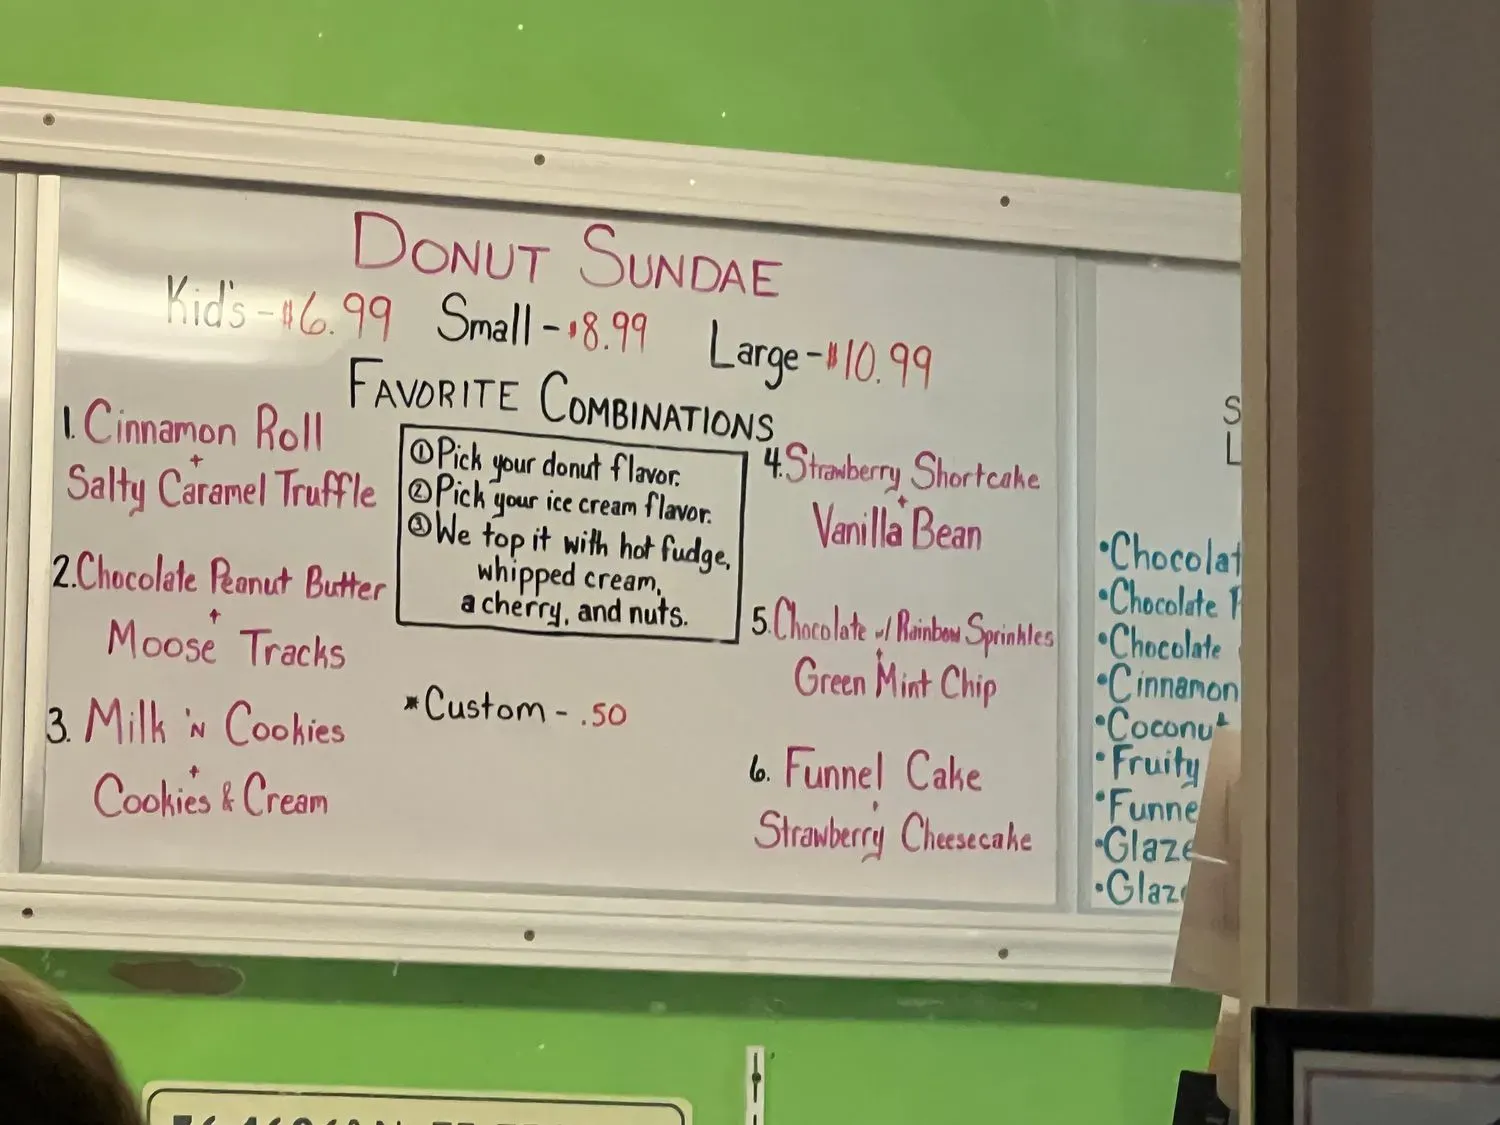 DONUT SUNDAE
Kid's - $6.99 Small - $8.99 Large - $10.99
FAVORITE COMBINATIONS
1. Cinnamon Roll
+
Salty Caramel Truffle
2. Chocolate Peanut Butter
+
Moose Tracks
3. Milk 'N Cookies
+
Cookies & Cream
① Pick your donut flavor.
② Pick your ice cream flavor.
③ We top it with hot fudge,
whipped cream,
a cherry, and nuts.
*Custom - .50
4. Strawberry Shortcake
+
Vanilla Bean
5. Chocolate w/ Rainbow Sprinkles
+
Green Mint Chip
6. Funnel Cake
+
Strawberry Cheesecake
S
L
•Chocolat
•Chocolate P
•Chocolate
•Cinnamon
•Coconut
•Fruity
•Funne
•Glaze
•Glaz